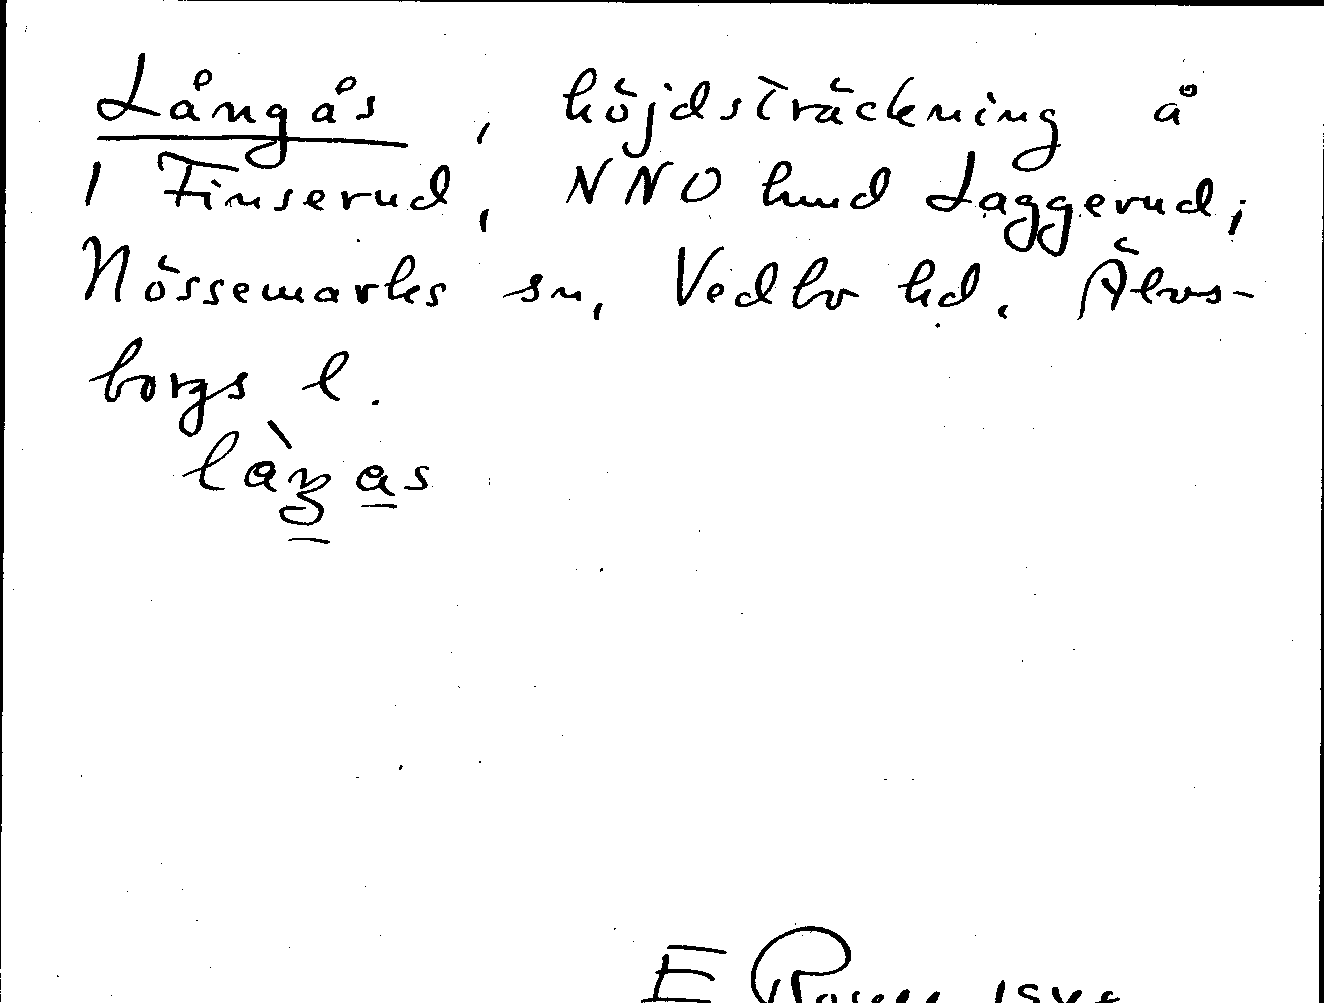 Långås, höjdsträckning å
1 Finserud, NNO hmd Laggerud;
Nössemarks sn, Vedbo hd. Älvs-
borgs l.
E